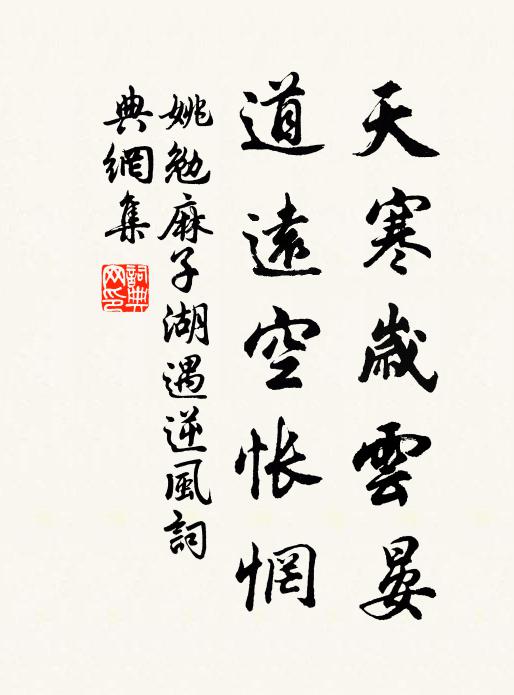 天寒歲雲晏
道遠空悵惘
姚勉麻子湖遇逆風詞
典網集
詞典網印